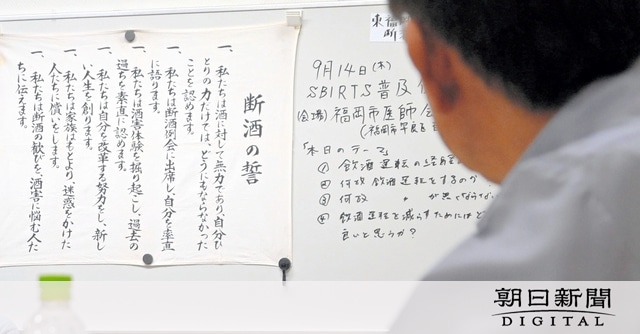 断酒の誓
一、私たちは酒に対して無力であり、自分ひ
とりの力だけでは、どうにもならなかった
ことを認めます。
一、私たちは断酒例会に出席し、自分を率直
に語ります。
一、私たちは酒害体験を掘り起こし、過去の
過ちを素直に認めます。
一、私たちは自分を改革する努力をし、新し
い人生を創ります。
一、私たちは家族はもとより、迷惑をかけた
人たちに償いをします。
一、私たちは断酒の歓びを、酒害に悩む人た
ちに伝えます。
東福
断
9月14日(木)
SBIRTS普及
(会場) 福岡市医師会
(福岡市早良区
「本日のテーマ」
① 飲酒運転の経
② 何故飲酒運転をするのか
③ 何故 〃 が
④ 飲酒運転を減らすためには
良いと思うか?
朝日新聞
DIGITAL